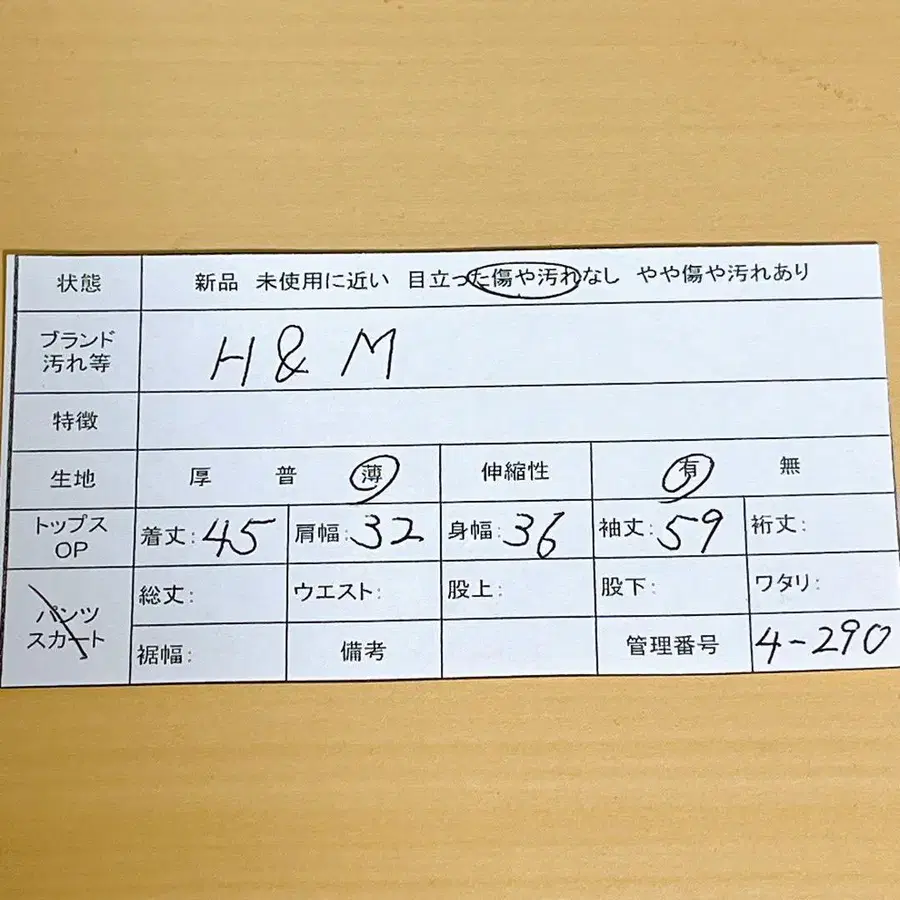 状態 新品 未使用に近い 目立った傷や汚れなし やや傷や汚れあり
ブランド
汚れ等 H & M
特徴
生地 厚 普 薄 伸縮性 有 無
トップス
OP 着丈: 45 肩幅: 32 身幅: 36 袖丈: 59 裄丈:
パンツ
スカート
総丈: ウエスト: 股上: 股下: ワタリ:
裾幅: 備考 管理番号 4-290